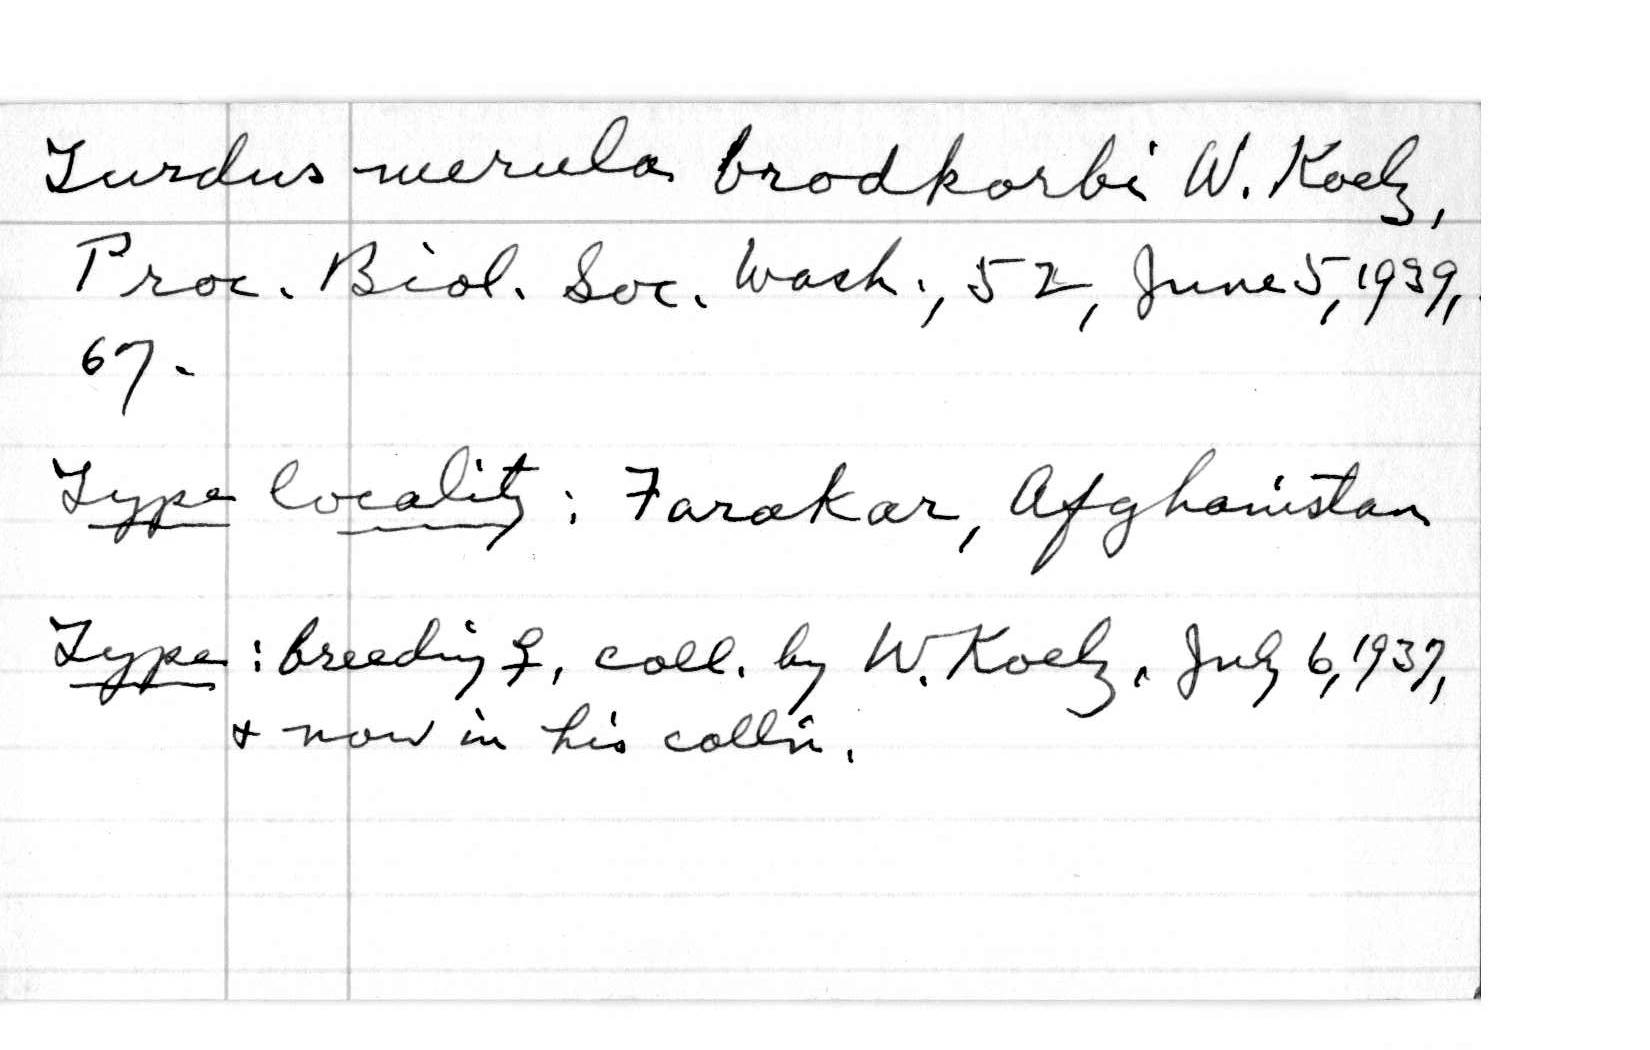 Turdus merula brodkorbi W. Koelz,
Proc. Biol. Soc. Wash., 52, June 5, 1939,
67.
Type locality: Farakar, Afghanistan
Type: breeding ♀, coll. by W. Koelz, July 6, 1937,
& now in his colln.